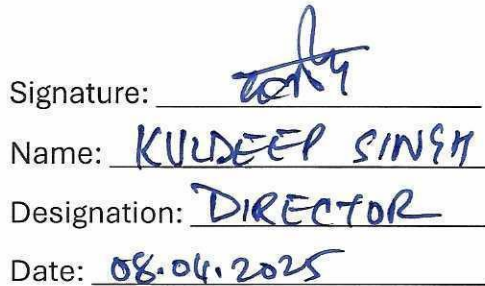 Signature:
Name: KULDEEP SINGH
Designation: DIRECTOR
Date: 08.04.2025